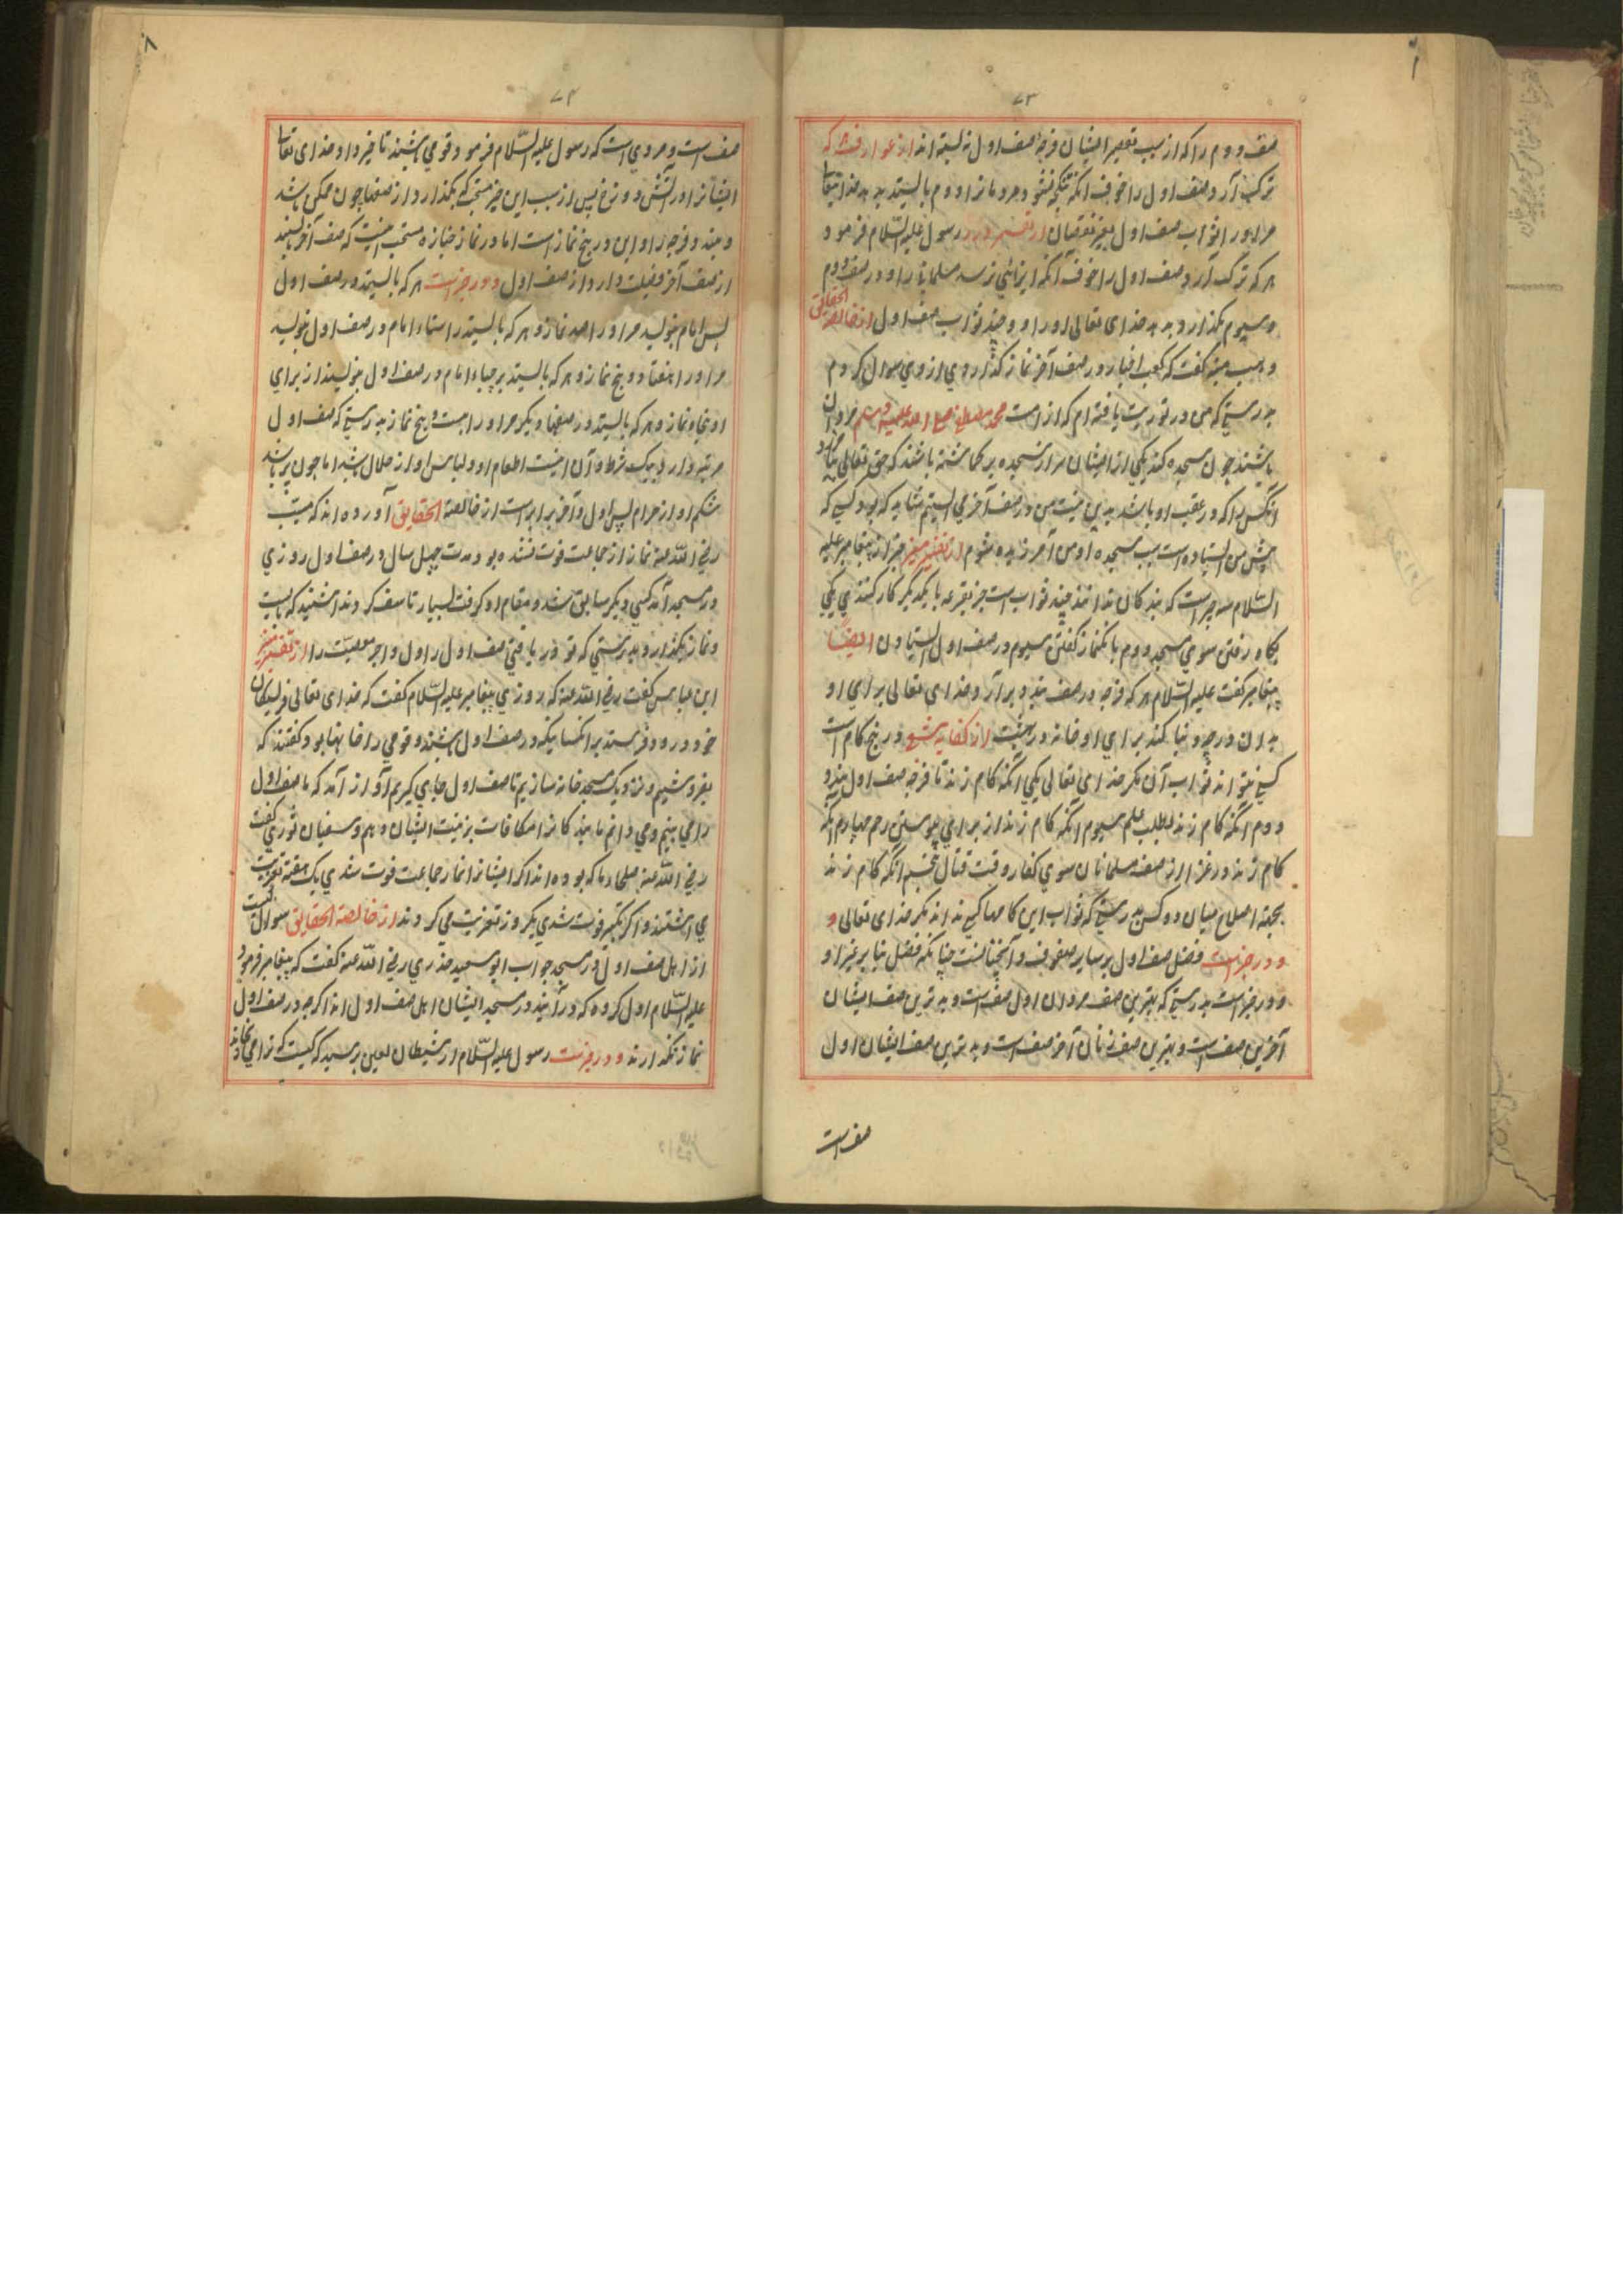 ۷۳
صف دوم را که از سبب تقصیر ایشان فرجهٔ صف اول نه بسته اند از عوارف هر که
ترک آرد صف اول را خوف آنکه تنگ نشود مردمان را دوم بالیستد بدهد خدایتعالی
مر او را ثواب صف اول بغیر نقصان از تفسیر رسول علیه السّلام فرمود
هر که ترک آرد صف اول را خوف آنکه ایذائی نرسد مسلمانی را و در صف دوم
و سیوم بگذارد بدهد خدای تعالی او را دو چند ثواب صف اول از خالصة الحقایق
وهب منبه گفت که کعب احبار در صف آخر نماز گذاردی از وی سوال کردم
بدرستی که من در توریت یافته ام که از امت محمد مصطفی صلی الله علیه وسلم مردان
باشند چون سجده کند یکی از ایشان سر از سجده بر نداشته باشند که حق تعالی
آنکس را که در عقب او باشد بدین نیت من در صف آخر می ایستم شاید که بود کسی که
پیش من ایستاده است بسبب سجده او من آمرزیده شوم از تفسیر خبر از پیغامبر علیه
السّلام سه چیز است که بندکان ندانند چند ثواب است جز بقرعه با یکدیگر کار نکنندی یکی
پگاه رفتن سوی مسجد دوم بانگنماز گفتن سیوم در صف اول ایستادن ایضًا
پیغامبر گفت علیه السّلام هر که فرجه در صف بیند و برآرد خدای تعالی برای او
بدان درجه و بنا کند برای او خانه در بهشت از کفایه شعبی در پنج کام است
کسی نتواند ثواب آن مگر خدای تعالی یکی آنکه کام زند تا فرجه صف اول بندد
دوم آنکه کام زند لطلب علم سیوم آنکه کام زند از برای پیوستن رحم چهارم آنکه
کام زند در غزا از صف مسلمانان سوی کفار وقت قتال پنجم آنکه کام زند
بجهة اصلاح میان دو کس بدرستی که ثواب این کامها کسی نداند مگر خدای تعالی و
و در خبر است فضل صف اول بر سایر صفوف و آنچنانست چنانکه فضل بنا بر غیر او
و در خبر است بدرستی که بهترین صف مردان اول صف است و بدترین صف ایشان
آخرین صف است و بهترین صف زنان آخر صف است و بدترین صف ایشان اول
صف است
۷۴
صف است و مروی است که رسول علیه السّلام فرمود قومی باشند تاخیر دارد خدای تعالی
ایشانرا در آتش دوزخ پس از سبب این خبر مستحب که بگذارد از صفها چون ممکن باشد
و بیند فرجه را و این در پنج نماز است اما در نماز جنازه مستحب اینست که صف آخر ایستد
از صف آخر فضیلت دارد از صف اول و در خبر است هر که بالیستد در صف اول
پس امام بنویسد مر او را صد نماز و هر که بالیستد راستاء امام در صف اول بنویسد
مر او را هفتاد و پنج نماز و هر که بالیستد بر چپاء امام در صف اول بنویسند از برای
او پنجاه نماز و هر که بالیستد در صفها دیگر مر او را بیست و پنج نماز بدرستی که صف اول
مرتبه دارد بیک شرط و آن اینست اطعام او و لباس او از حلال باشد اما چون پر باشد
شکم او از حرام پس اول و آخر برابر است از خالصة الحقایق آورده اند که
رضی اللّه عنه نماز از جماعت فوت نشده بود مدت چهل سال در صف اول روزی
در مسجد آمد کسی دیگر سابق شد و مقام او گرفت بسیار تاسف کرد
و نماز بگذارد بدرستی که تو دریافتی صف اول را اول و اجر مصیبت را از تفسیر
ابن عباس گفت رضی اللّه عنه که روزی پیغامبر علیه السّلام گفت که خدای تعالی فریستکان
خود درود فرستد بر انکسانیکه در صف اول باشند و قومی را خانها بود گفتند که
بفروشیم و نزدیک مسجد خانه سازیم تا صف اول جای گیریم آواز آمد که ما صف اول
را می بینم و می دانم ما بندکانرا مکافات بر نیت ایشان دهم و سفیان ثوری گفت
رضی اللّه عنه صلحا ما که بوده اند اگر ایشانرا نماز جماعت فوت شدی یک هفته تعزیت
می داشتند و اگر تکبیر فوت شدی یکروز تعزیت می کردند از خالصة الحقایق سوال کیست
از اهل صف اول در مسجد جواب ابو سعید خدری رضی اللّه عنه گفت که پیغامبر فرمود
علیه السّلام اول کروه که در آیند در مسجد ایشان اهل صف اول اند اگرچه در صف اول
نماز نگذارند و در خبر است رسول علیه السّلام از شیطان لعین پرسید که کیست که ترا می